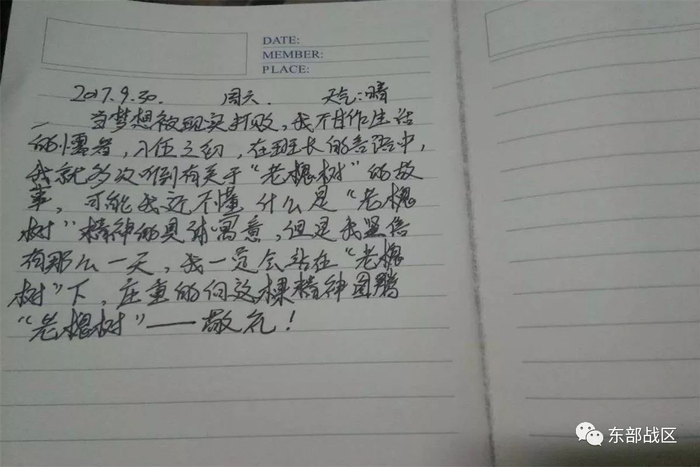 DATE:
MEMBER:
PLACE:
2017.9.30. 周六 天气:晴
当梦想被现实打败,我不甘作生活
的懦者,入伍之初,在班长的言语中,
我就多次听到有关于“老槐树”的故
事,可能我还不懂,什么是“老槐
树”精神的具体寓意,但是我坚信
有那么一天,我一定会站在“老槐
树”下,庄重的向这棵精神图腾
“老槐树”——敬礼!
东部战区